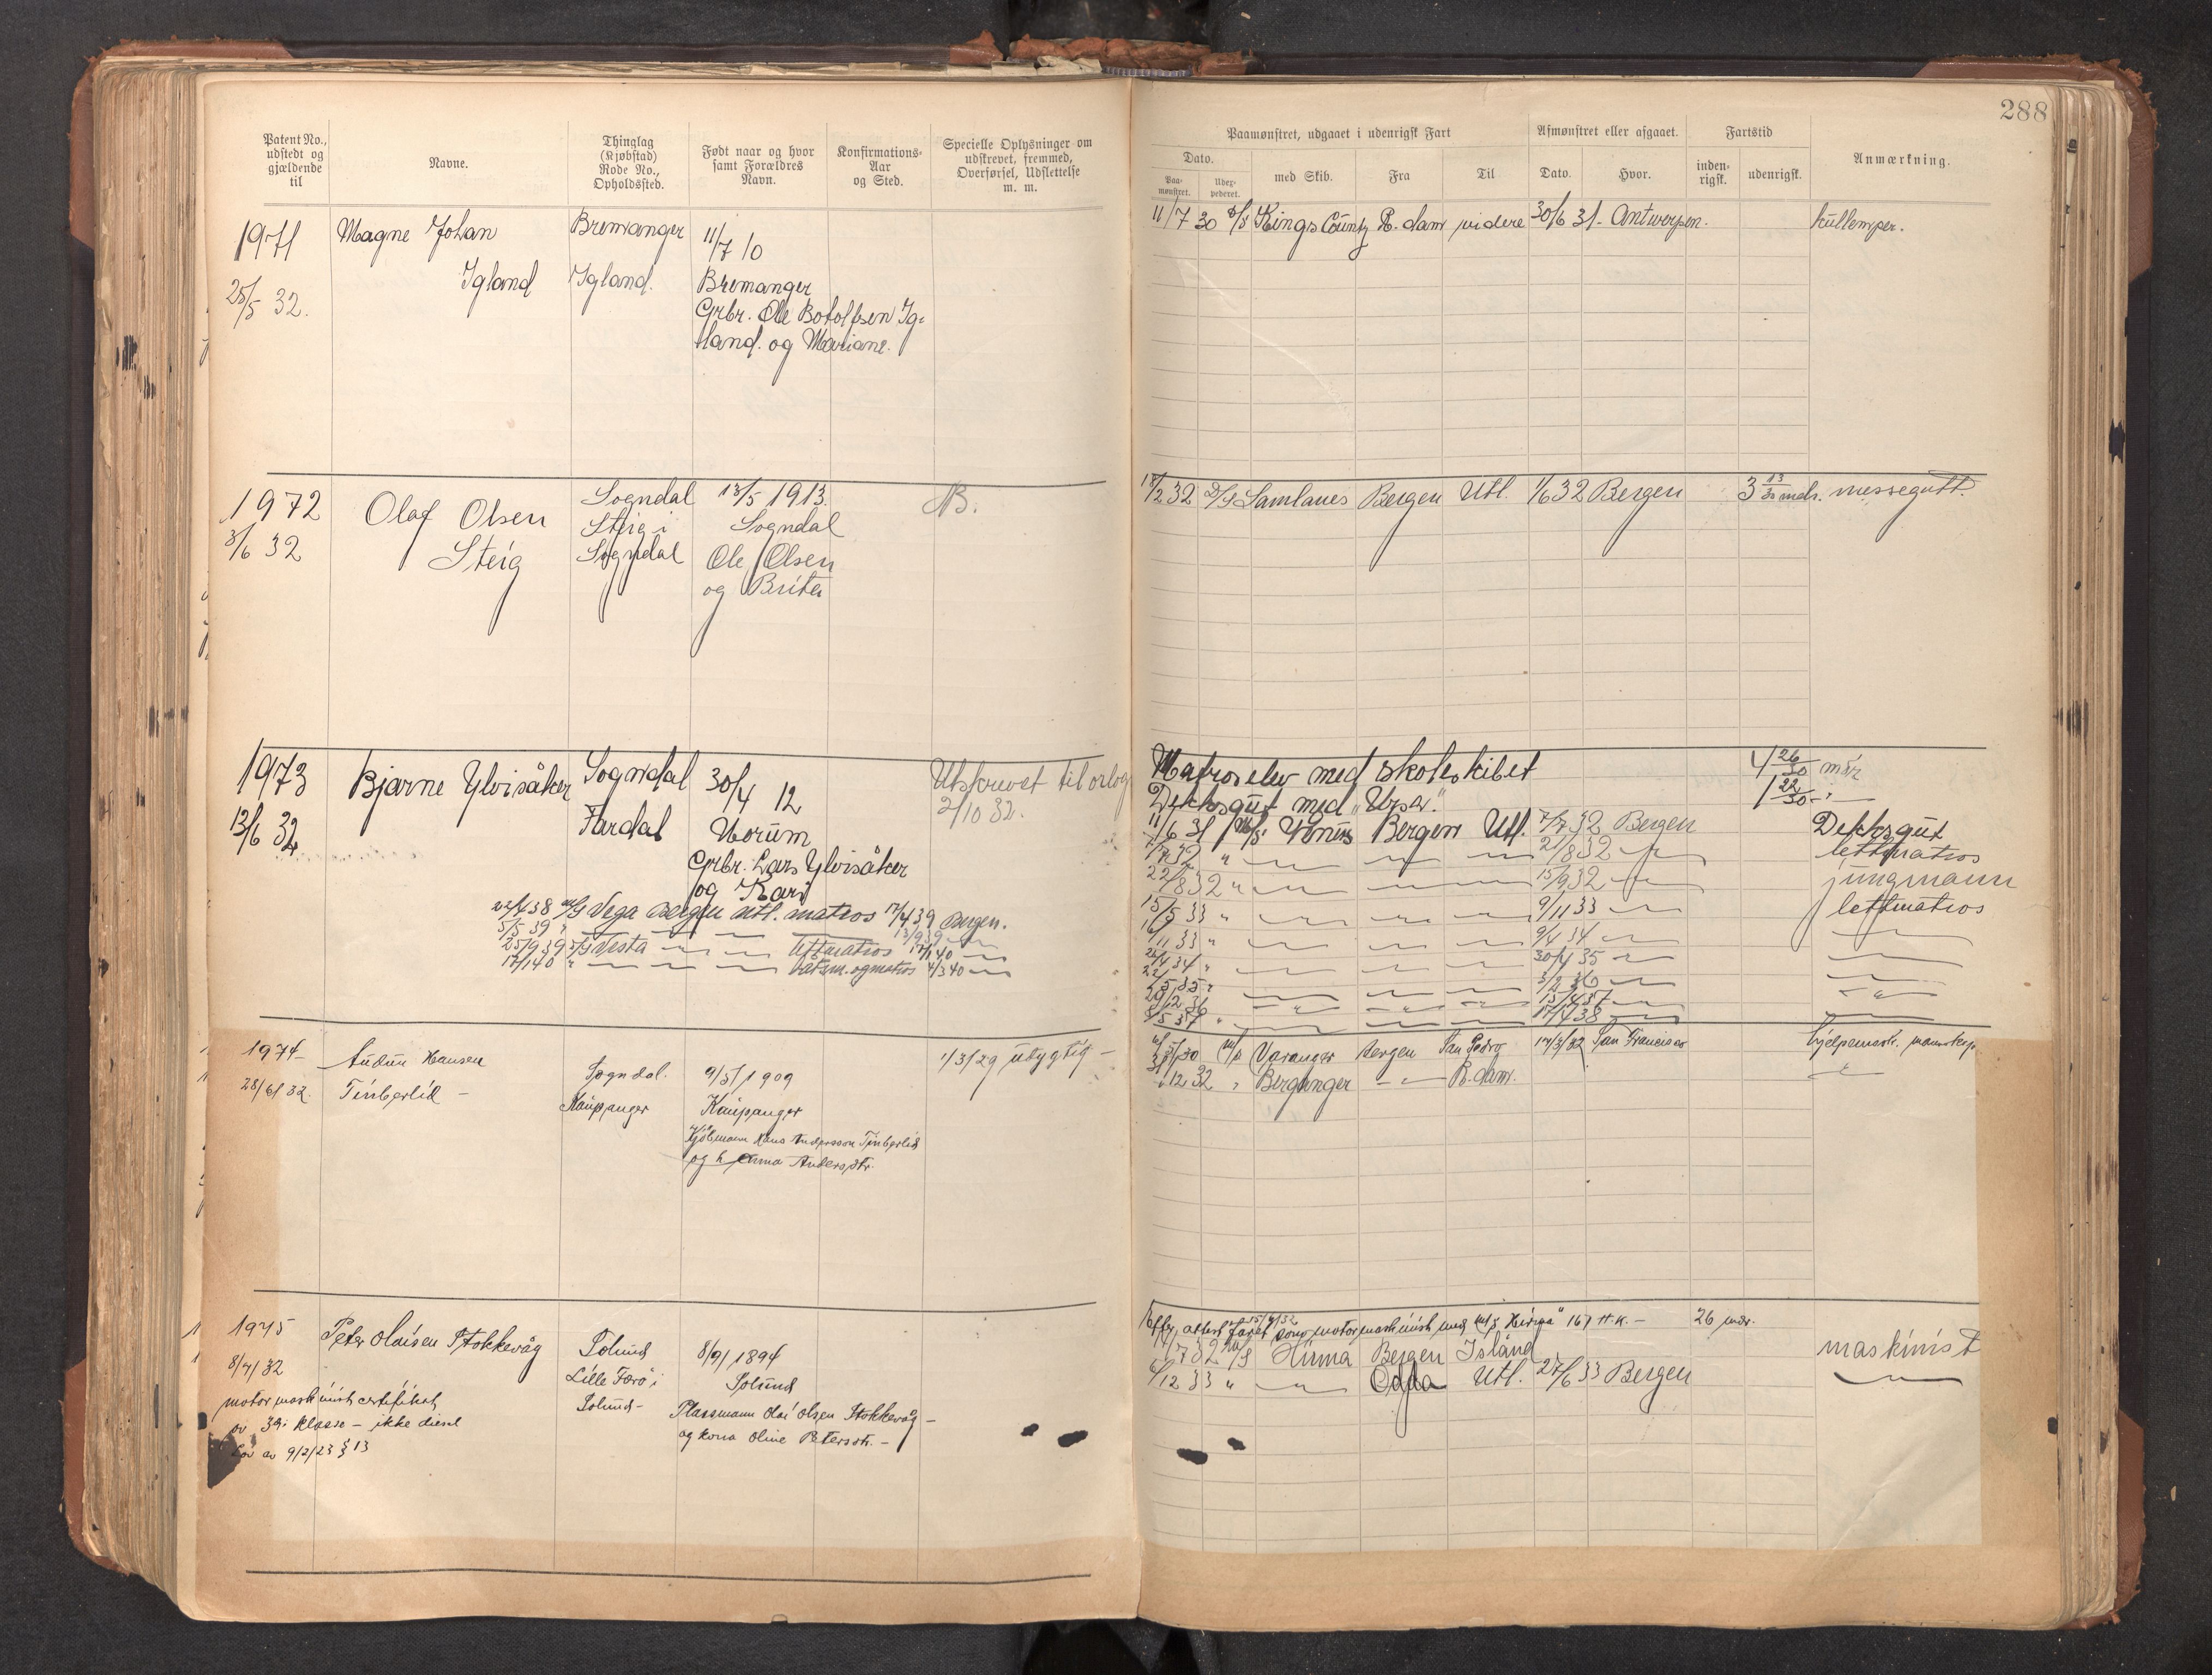 288
Patent No., udstedt og gjældende til
Navne.
Thinglag (Kjøbstad) Rode No., Opholdssted.
Født naar og hvor samt Forældres Navn.
Konfirmations-Aar og Sted.
Specielle Oplysninger om udskrevet, fremmed, Overførsel, Udslettelse m. m.
Paamønstret, udgaaet i udenrigsk Fart
Afmønstret eller afgaaet.
Fartstid
Anmærkning.
Dato.
Paa-mønstret.
med Skib.
Fra
Til
Dato.
Hvor.
inden-rigsk.
udenrigsk.
1971 Magne Johan Bremanger 11/7 10
Igland Igland.
25/5 32. Bremanger
Grbr. Ole Botolfsen Ig-
land. og Mariane.
11/7 30 Kings County R.dam videre 30/6 31 - Antwerpen. kullemper.
1972 Olaf Olsen Sogndal 13/5 1913 B.
Steig i Sogndal
3/6 32 Steig Sogndal Ole Olsen
og Brita
18/2 32 D/S Samlanes Bergen Utl. 1/6 32 Bergen 3 13/30 mdr. messegutt.
1973 Bjarne Ylvisåker Sogndal 30/4 12 Utskrevet til orlog
2/10 32.
13/6 32 Fardal Norum
Grbr. Lars Ylvisåker
og Kari
22/4 38 M/S Vega Bergen utl. matros 17/4 39 Bergen.
5/5 39 " 13/9 39
25/9 39 D/S Vesta lettmatros 17/1 40
17/1 40 " båtsm. og matros 4/3 40
Matroselev med skoleskibet 4 26/30 mdr
Dekksgut med "Ursa." 1 22/30 - " -
11/6 31 M/S Venus Bergen Utl. 7/7 32 Bergen Dekksgut
7/7 32 " 21/8 32 lettmatros
22/8 32 " 15/9 32 jungmann
15/5 33 " 9/11 33 lettmatros
16/11 33 " 9/4 34
24/4 34 " 30/4 35
22/5 35 " 3/2 36
29/2 36 15/4 37
5/5 37 " 17/4 38
1974 Audun Hansen Sogndal. 9/5/1909 1/3/29 udygtig
28/6/32. Timberlid Kaupanger Kaupanger
Kjøbmann Hans Andersson Timberlid
og h Anna Andersdtr.
M/S Varanger Bergen San Pedro 17/3/32 San Francisco hjelpemask. mannskap
12 32 " Berganger R.dam.
1975 Peter Olaisen Stokkevåg Solund 8/9/1894
8/7/32 Lille Færø i Solund
motormaskinist certifikat Solund - Plassmann Olai Olsen Stokkevåg -
av 3dje klasse - ikke diesel og kona Oline Petersdtr. -
Lov av 9/2/23 § 13
15/7/32
attest faret som motormaskinist med M/S Hirma" 167 H.K. - 26 mdr.
7 32 M/S Hirma Bergen Island maskinist
4/12 33 " Odda Utl. 27/6 33 Bergen